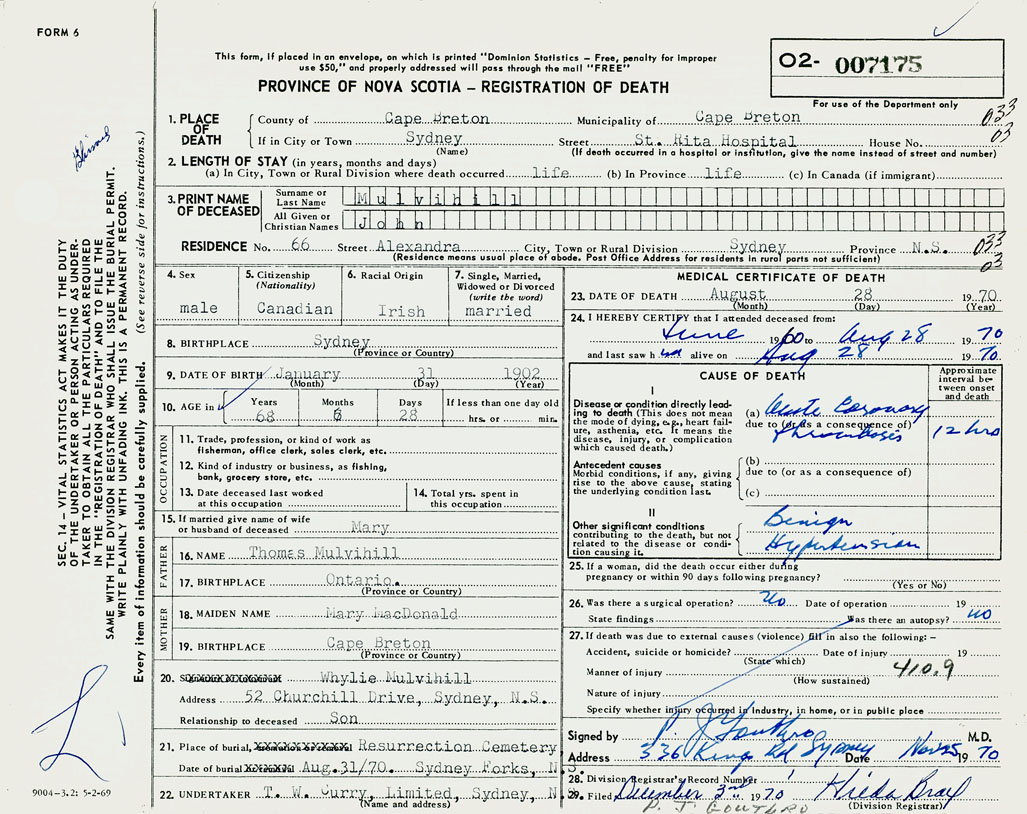 FORM 6
This form, if placed in an envelope, on which is printed "Dominion Statistics – Free, penalty for improper
use $50," and properly addressed will pass through the mail "FREE"
PROVINCE OF NOVA SCOTIA – REGISTRATION OF DEATH
02- 007175
For use of the Department only
SEC. 14 – VITAL STATISTICS ACT MAKES IT THE DUTY
OF THE UNDERTAKER OR PERSON ACTING AS UNDER-
TAKER TO OBTAIN ALL THE PARTICULARS REQUIRED
IN THE "REGISTRATION OF DEATH" AND TO FILE THE
SAME WITH THE DIVISION REGISTRAR WHO SHALL ISSUE THE BURIAL PERMIT.
WRITE PLAINLY WITH UNFADING INK. THIS IS A PERMANENT RECORD.
Every item of information should be carefully supplied. (See reverse side for instructions.)
1. PLACE OF DEATH
County of Cape Breton Municipality of Cape Breton 033
If in City or Town Sydney Street St. Rita Hospital House No. 03
(Name) (If death occurred in a hospital or institution, give the name instead of street and number)
2. LENGTH OF STAY (in years, months and days)
(a) In City, Town or Rural Division where death occurred life (b) In Province life (c) In Canada (if immigrant)
3. PRINT NAME OF DECEASED
Surname or Last Name Mulvihill
All Given or Christian Names John
RESIDENCE No. 66 Street Alexandra City, Town or Rural Division Sydney Province N.S. 033
(Residence means usual place of abode. Post Office Address for residents in rural parts not sufficient) 03
4. Sex
male
5. Citizenship
(Nationality)
Canadian
6. Racial Origin
Irish
7. Single, Married,
Widowed or Divorced
(write the word)
married
8. BIRTHPLACE Sydney
(Province or Country)
9. DATE OF BIRTH January 31 1902
(Month) (Day) (Year)
10. AGE in
Years Months Days If less than one day old
68 6 28 hrs. or min.
OCCUPATION
11. Trade, profession, or kind of work as
fisherman, office clerk, sales clerk, etc.
12. Kind of industry or business, as fishing,
bank, grocery store, etc.
13. Date deceased last worked
at this occupation
14. Total yrs. spent in
this occupation
15. If married give name of wife
or husband of deceased Mary
FATHER
16. NAME Thomas Mulvihill
17. BIRTHPLACE Ontario.
(Province or Country)
MOTHER
18. MAIDEN NAME Mary MacDonald
19. BIRTHPLACE Cape Breton
(Province or Country)
20. Whylie Mulvihill
Address 52 Churchill Drive, Sydney, N.S.
Relationship to deceased Son
21. Place of burial, Resurrection Cemetery
Date of burial Aug.31/70. Sydney Forks, N.S.
22. UNDERTAKER T. W. Curry, Limited, Sydney, N.S.
(Name and address)
9004-3.2: 5-2-69
MEDICAL CERTIFICATE OF DEATH
23. DATE OF DEATH August 28 1970
(Month) (Day) (Year)
24. I HEREBY CERTIFY that I attended deceased from:
June 1960 to Aug 28 1970
and last saw him alive on Aug 28 1970
CAUSE OF DEATH
Approximate
interval be-
tween onset
and death
I
Disease or condition directly lead-
ing to death (This does not mean
the mode of dying, e.g., heart fail-
ure, asthenia, etc. It means the
disease, injury, or complication
which caused death.)
(a) Acute Coronary
due to (or as a consequence of)
thrombosis 12 hrs
Antecedent causes
Morbid conditions, if any, giving
rise to the above cause, stating
the underlying condition last.
(b)
due to (or as a consequence of)
(c)
II
Other significant conditions
contributing to the death, but not
related to the disease or condi-
tion causing it.
Benign
Hypertension
25. If a woman, did the death occur either during
pregnancy or within 90 days following pregnancy?
(Yes or No)
26. Was there a surgical operation? No Date of operation 19
State findings Was there an autopsy? No
27. If death was due to external causes (violence) fill in also the following: –
Accident, suicide or homicide? Date of injury 19
(State which)
Manner of injury 410.9
(How sustained)
Nature of injury
Specify whether injury occurred in industry, in home, or in public place
Signed by P. J. Gouthro M.D.
Address 336 Kings Rd Sydney Date Nov 25 1970
28. Division Registrar's Record Number
29. Filed December 3rd 1970 Hilda Bray
(Division Registrar)
P. J. GOUTHRO